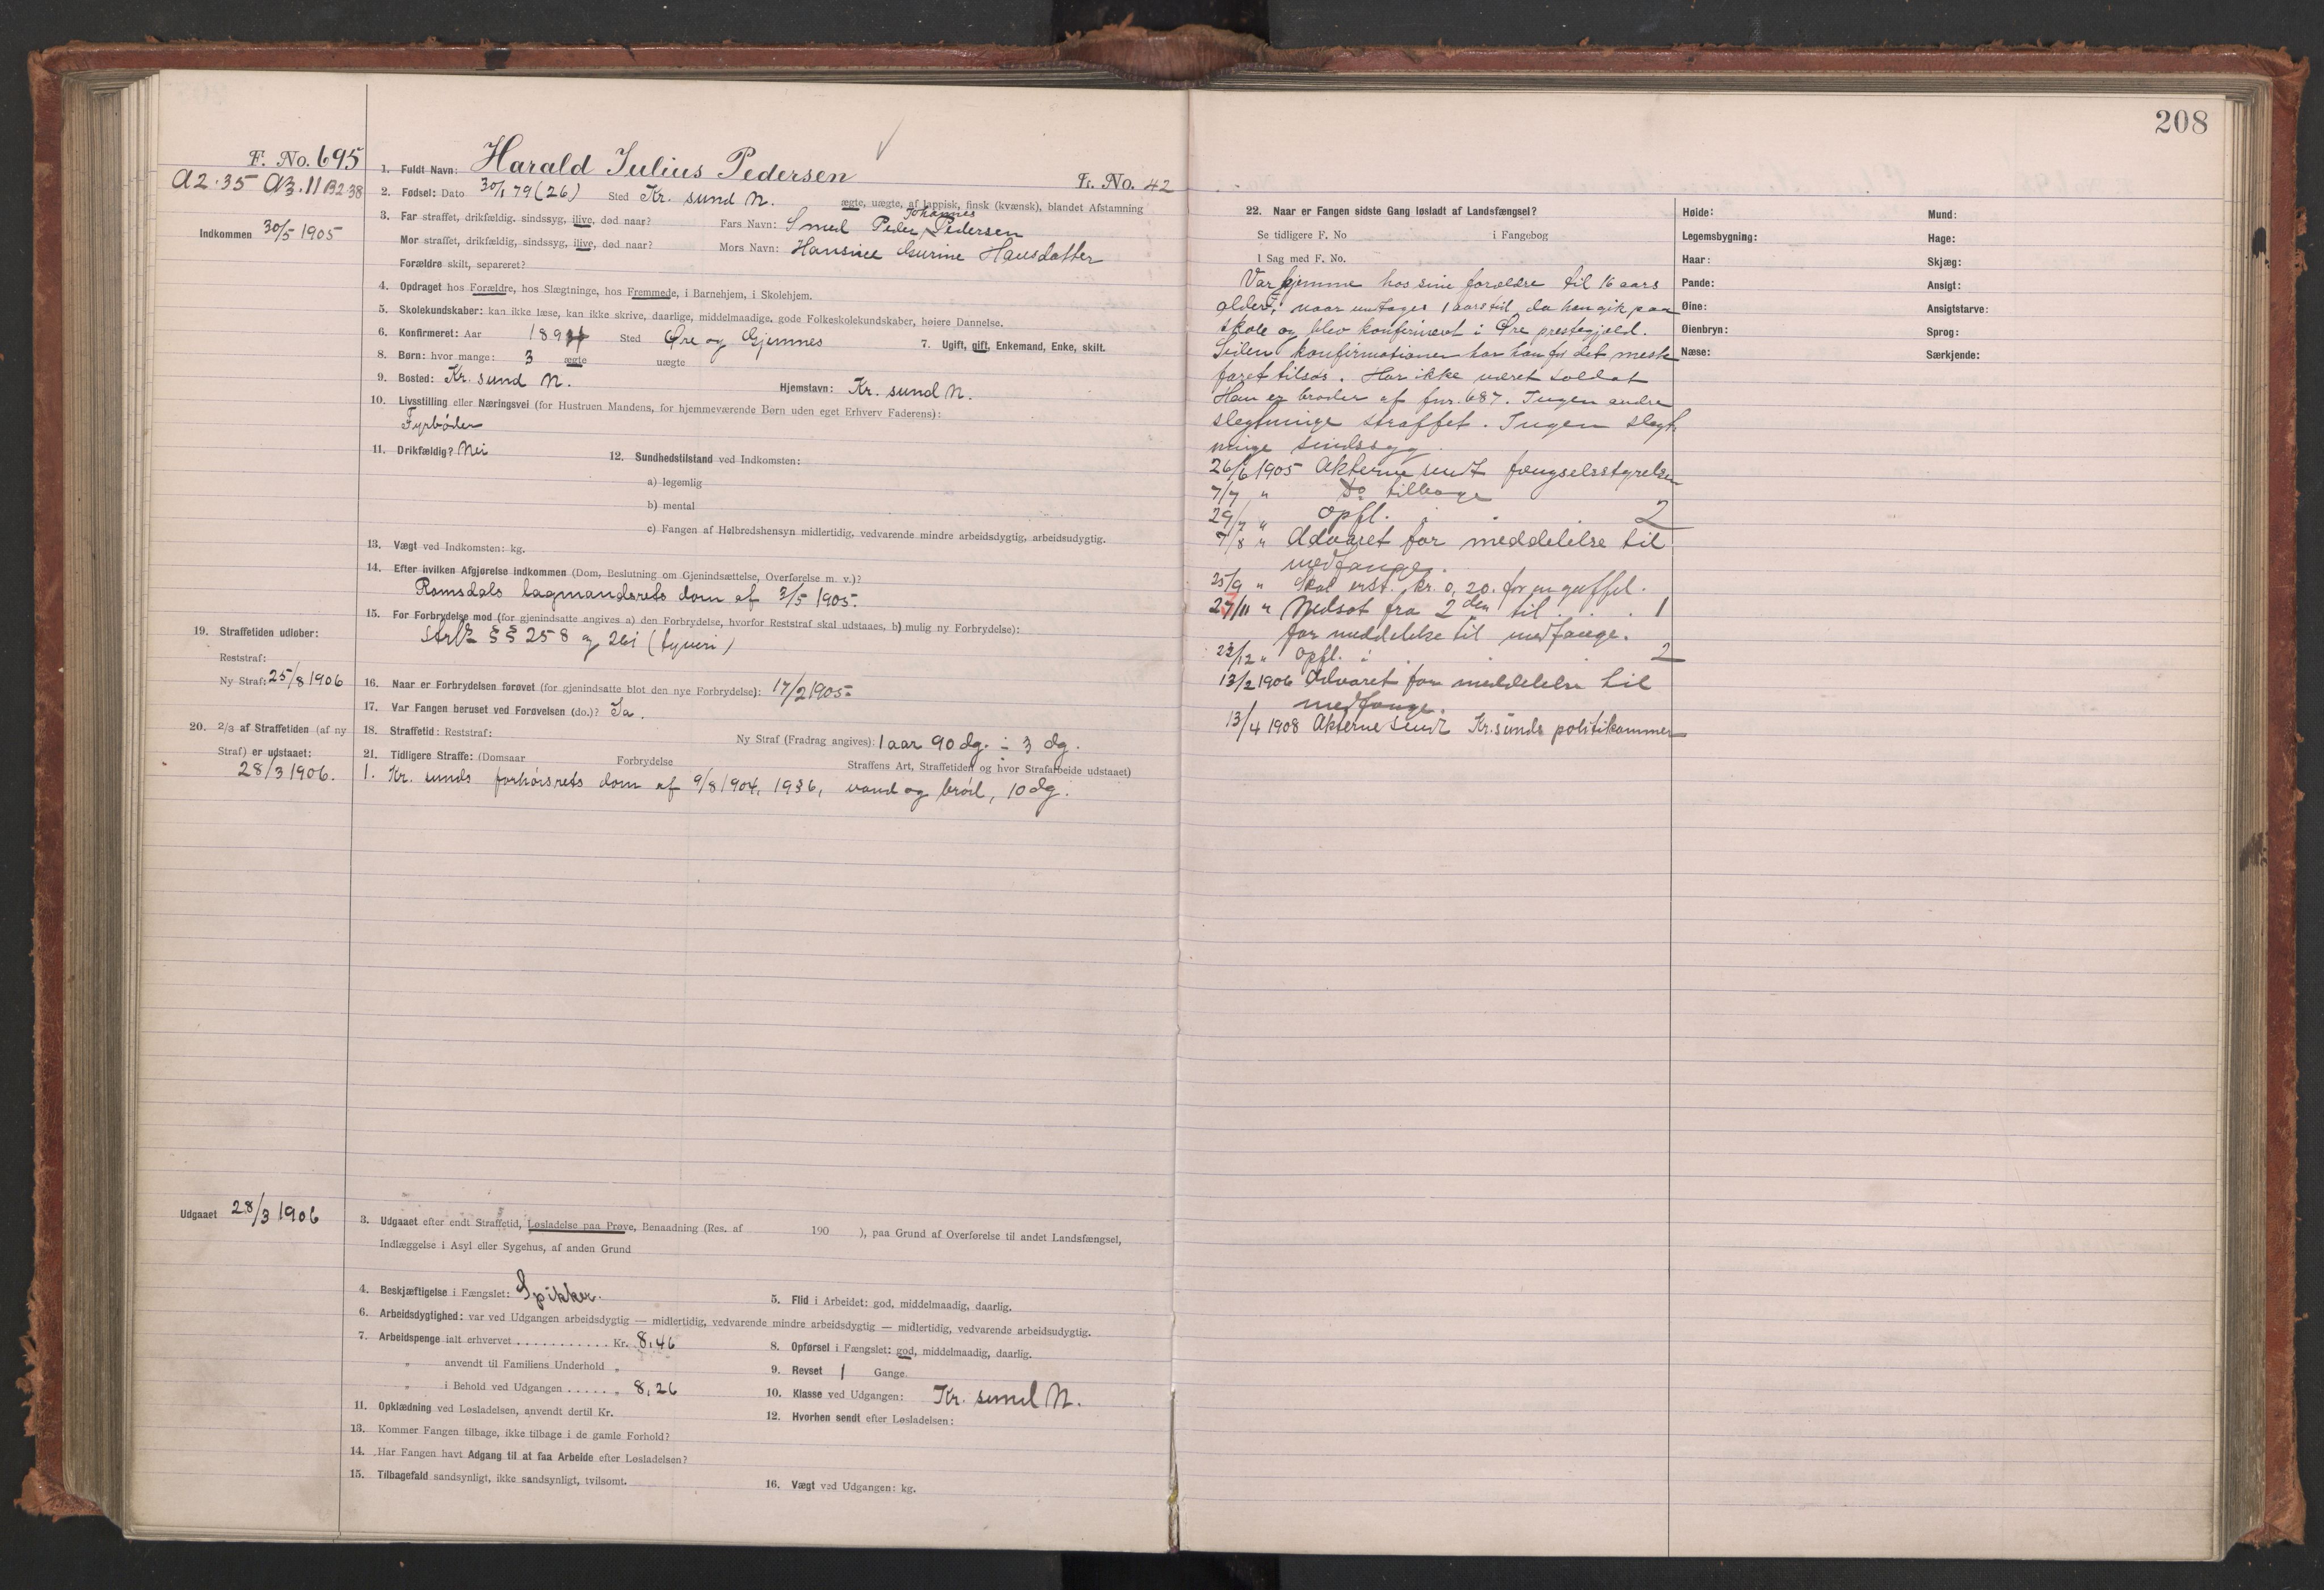 208
F. No. 695
A2.35 A3.11 B2.38
Indkommen 30/5 1905
1. Fuldt Navn: Harald Julius Pedersen Fr. No. 42
2. Fødsel: Dato 30/1 79 (26) Sted Kr. sund N. ægte, uægte, af lappisk, finsk (kvænsk), blandet Afstamning
3. Far straffet, drikfældig, sindssyg, ilive, død naar? Fars Navn: Smed Peder Johannes Pedersen
Mor straffet, drikfældig, sindssyg, ilive, død naar? Mors Navn: Hansine Gurine Hansdatter
Forældre skilt, separeret?
4. Opdraget hos Forældre, hos Slægtninge, hos Fremmede, i Barnehjem, i Skolehjem.
5. Skolekundskaber: kan ikke læse, kan ikke skrive, daarlige, middelmaadige, gode Folkeskolekundskaber, høiere Dannelse.
6. Konfirmeret: Aar 189 Sted Øre og Gjemnes 7. Ugift, gift, Enkemand, Enke, skilt.
8. Børn: hvor mange: 3 ægte uægte
9. Bosted: Kr. sund N. Hjemstavn: Kr. sund N.
10. Livsstilling eller Næringsvei (for Hustruen Mandens, for hjemmeværende Børn uden eget Erhverv Faderens):
Fyrbøder
11. Drikfældig? Nei 12. Sundhedstilstand ved Indkomsten:
a) legemlig
b) mental
c) Fangen af Helbredshensyn midlertidig, vedvarende mindre arbeidsdygtig, arbeidsudygtig.
13. Vægt ved Indkomsten: kg.
14. Efter hvilken Afgjørelse indkommen (Dom, Beslutning om Gjenindsættelse, Overførelse m. v.)?
Romsdals lagmandsrets dom af 3/5 1905.
15. For Forbrydelse mod (for gjenindsatte angives a) den Forbrydelse, hvorfor Reststraf skal udstaaes, b) mulig ny Forbrydelse):
Strfl §§ 258 og 261 (tyveri)
19. Straffetiden udløber:
Reststraf:
Ny Straf: 25/8 1906
16. Naar er Forbrydelsen forøvet (for gjenindsatte blot den nye Forbrydelse): 17/2 1905.
17. Var Fangen beruset ved Forøvelsen (do.)? Ja.
20. 2/3 af Straffetiden (af ny Straf) er udstaaet:
28/3 1906.
18. Straffetid: Reststraf: Ny Straf (Fradrag angives): 1 aar 90 dg. ÷ 3 dg.
21. Tidligere Straffe: (Domsaar Forbrydelse Straffens Art, Straffetiden og hvor Strafarbeide udstaaet)
1. Kr. sunds forhørsrets dom af 9/8 1904, 1936, vand og brød, 10 dg.
Udgaaet 28/3 1906
3. Udgaaet efter endt Straffetid, Løsladelse paa Prøve, Benaadning (Res. af 190 ), paa Grund af Overførelse til andet Landsfængsel,
Indlæggelse i Asyl eller Sygehus, af anden Grund
4. Beskjæftigelse i Fængslet: Spikker. 5. Flid i Arbeidet: god, middelmaadig, daarlig.
6. Arbeidsdygtighed: var ved Udgangen arbeidsdygtig — midlertidig, vedvarende mindre arbeidsdygtig — midlertidig, vedvarende arbeidsudygtig.
7. Arbeidspenge ialt erhvervet ........... Kr. 8,46 8. Opførsel i Fængslet: god, middelmaadig, daarlig.
„ anvendt til Familiens Underhold „ 9. Revset 1 Gange.
„ i Behold ved Udgangen ...... „ 8,26 10. Klasse ved Udgangen: Kr. sund N.
11. Opklædning ved Løsladelsen, anvendt dertil Kr. 12. Hvorhen sendt efter Løsladelsen:
13. Kommer Fangen tilbage, ikke tilbage i de gamle Forhold?
14. Har Fangen havt Adgang til at faa Arbeide efter Løsladelsen?
15. Tilbagefald sandsynligt, ikke sandsynligt, tvilsomt. 16. Vægt ved Udgangen: kg.
22. Naar er Fangen sidste Gang løsladt af Landsfængsel?
Se tidligere F. No i Fangebog
I Sag med F. No.
Var hjemme hos sine forældre til 16 aars
alder, naar undtages 1 aars tid da han gik paa
skole og blev konfirmeret i Øre prestegjæld.
Siden konfirmationen har han for det meste
faret tilsøs. Har ikke været soldat
Han er broder af fnr. 687. Ingen andre
slegtninge straffet. Ingen slegt-
ninge sindssyg.
26/6 1905 Akterne sendt fængselsstyrelsen
7/7 " Do tilbage
29/7 " Opfl. i . . 2
7/8 " Advaret for meddelelse til
medfange.
25/9 " Skal erst. kr. 0,20 for en gaffel.
27/11 " Nedsat fra 2den til . . 1
for meddelelse til medfange.
23/12 " Opfl. i . . 2
13/2 1906 Advaret for meddelelse til
medfange.
13/4 1908 Akterne sendt Kr.sunds politikammer
Høide:
Legemsbygning:
Haar:
Pande:
Øine:
Øienbryn:
Næse:
Mund:
Hage:
Skjæg:
Ansigt:
Ansigtsfarve:
Sprog:
Særkjende: